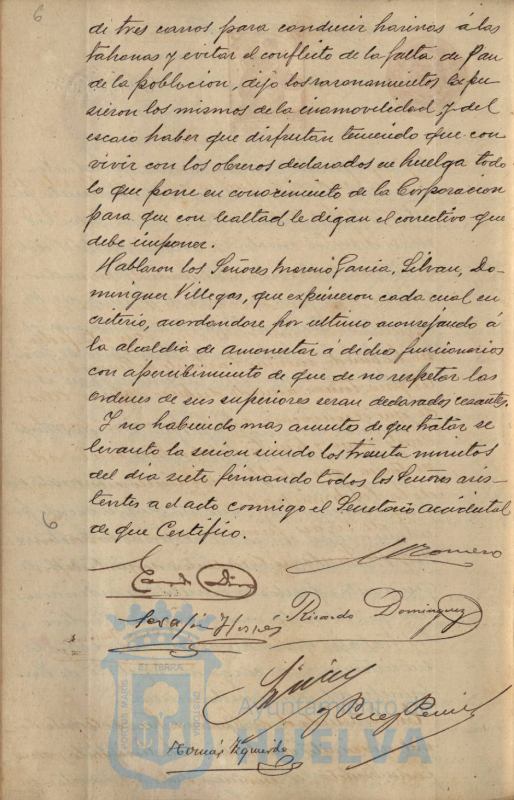 6
de tres carros, para conducir harinas á las
tahonas y evitar el conflicto de la falta de Pan
de la poblacion, dijo los razonamientos expu
sieron los mismos de la inamovilidad, y del
escaso haber que disfrutan teniendo que con
vivir con los obreros declarados en huelga todo
lo que pone en conocimiento de la Corporacion
para que con lealtad le digan el correctivo que
debe imponer.
Hablaron los Señores Moreno Garcia, Silvan, Do-
minguez Villegas, que expusieron cada cual su
criterio, acordandose por ultimo aconsejando á
la alcaldia de amonestar á dichos funcionarios
con apercibimiento de que de no respetar las
ordenes de sus superiores seran declarados cesantes.
Y no habiendo mas asuntos de que tratar se
levanto la sesion siendo los treinta minutos
del dia siete firmando todos los Señores asis-
tentes a el acto conmigo el Secretario accidental
6
de que Certifico.
Romero
Ricardo Dominguez
Perez
Tomás Izquierdo
ET TERRAE
PORTUS MARIS
CUSTODIA
Ayuntamiento de
HUELVA